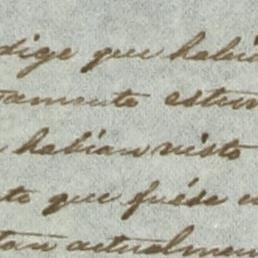 dige que habia
amente estuv
habian visto
to que fuése u
tan actualmen